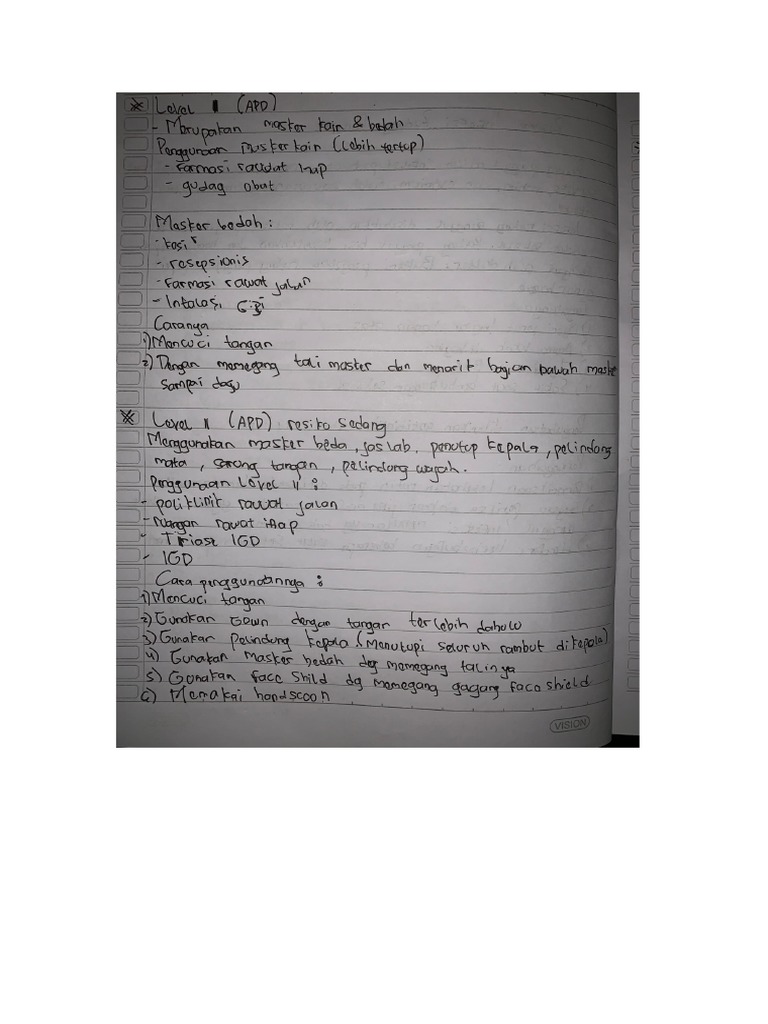 * Level I (APD)
- Merupakan masker kain & bedah
Penggunaan Masker kain (Lebih tertup)
- Farmasi rawat Inap
- gudag obat
Masker bedah :
- kasir
- resepsionis
- Farmasi rawat jalan
- Intalasi Gizi
Caranya
1) Mencuci tangan
2) Dengan memegang tali masker dan menarik bagian bawah masker
sampai dagu
* Level II (APD) resiko sedang
Menggunakan masker beda, jas lab, penutup kepala, pelindung
mata, sarung tangan, pelindung wajah.
Penggunaan Level II :
- poliklinik rawat jalan
- ruangan rawat inap
- Triase IGD
- IGD
Cara penggunaannya :
1) Mencuci tangan
2) Gunakan Gown dengan tangan terlebih dahulu
3) Gunakan Pelindung kepala (Menutupi seluruh rambut di kepala)
4) Gunakan Masker bedah dg memegang talinya
5) Gunakan face Shild dg memegang gagang face shield
6) Memakai handscoon
VISION